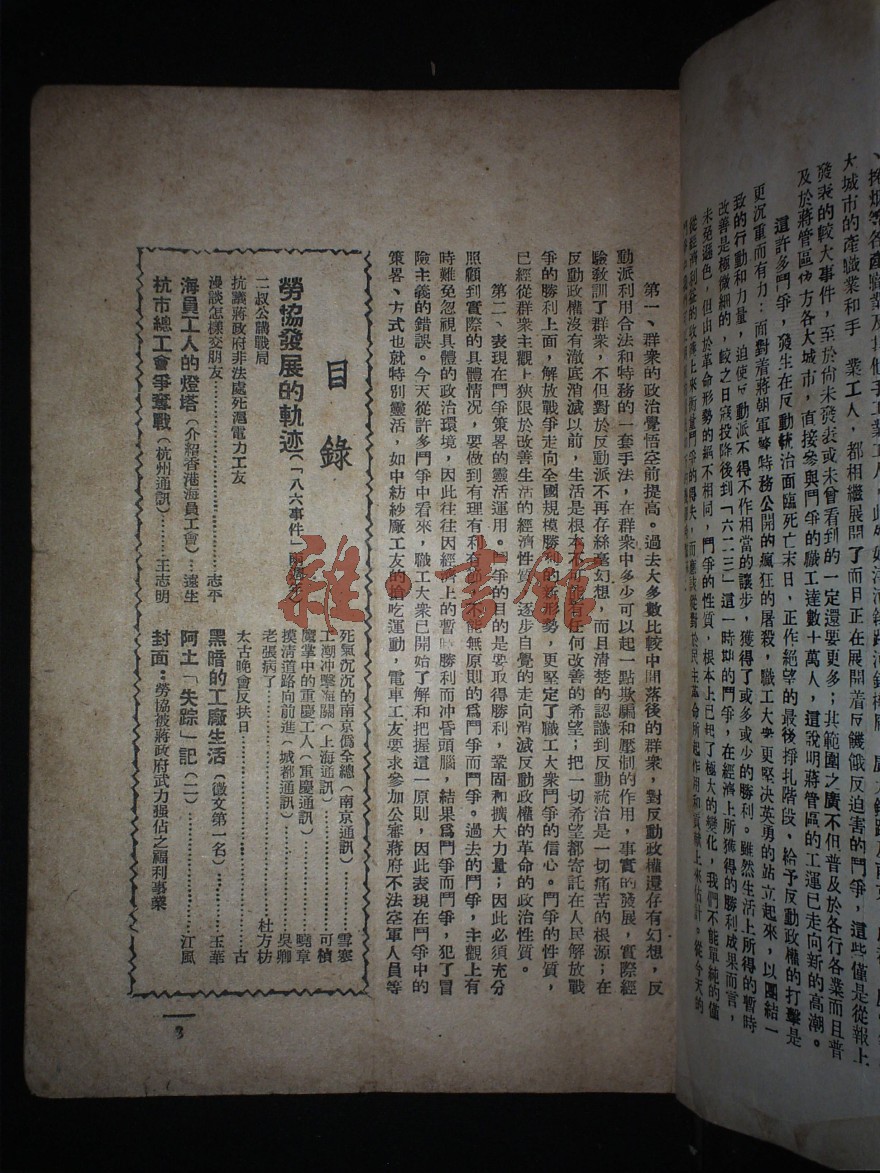 發表的較大事件，至於尚未發表或未曾看到的一定還要更多；其範圍之廣不但普及於各行各業而且普
及於蔣管區後方各大城市，直接參與鬥爭的職工達數十萬人，這說明蔣管區的工運已走向新的高潮。
這許多鬥爭，發生在反動統治面臨死亡末日，正作絕望的最後掙扎階段，給予反動政權的打擊是
更沉重而有力：面對着蔣朝軍警特務公開的瘋狂的屠殺，職工大衆更堅决英勇的站立起來，以團結一
致的行動和力量，迫使反動派不得不作相當的讓步，獲得了或多或少的勝利。雖然生活上所得的暫時
改善是極微細的，較之日寇投降後到「六二三」這一時期的鬥爭，在經濟上所獲得的勝利成果而言，
未免遜色，但由於革命形勢的絕不相同，鬥爭的性質，根本上已起了極大的變化，我們不能單純的僅
第一、群衆的政治覺悟空前提高。過去大多數比較中間落後的群衆，對反動政權還存有幻想，反
動派利用合法和特務的一套手法，在群衆中多少可以起一點欺騙和壓制的作用，事實的發展，實際經
驗敎訓了群衆，不但對於反動派不再存絲毫幻想，而且清楚的認識到反動統治是一切痛苦的根源；在
反動政權沒有澈底消滅以前，生活是根本不可能有任何改善的希望；把一切希望都寄託在人民解放戰
爭的勝利上面，解放戰爭走向全國規模勝利的新形勢，更堅定了職工大衆鬥爭的信心。鬥爭的性質，
已經從群衆主觀上狹限於改善生活的經濟性質，逐步自覺的走向消滅反動政權的革命的政治性質。
第二、表現在鬥爭策略的靈活運用。鬥爭的目的是要取得勝利，鞏固和擴大力量；因此必須充分
照顧到實際的具體情况，要做到有理有利有節，不能無原則的爲鬥爭而鬥爭。過去的鬥爭，主觀上有
時難免忽視具體的政治環境，因此往往因經濟上的暫時勝利而冲昏頭腦，結果爲鬥爭而鬥爭，犯了冒
險主義的錯誤。今天從許多鬥爭中看來，職工大衆已開始了解和把握這一原則，因此表現在鬥爭中的
策畧、方式也就特別靈活，如中紡紗廠工友的搶吃運動，電車工友要求參加公審蔣府不法空軍人員等
目錄
勞協發展的軌迹（「八六事件」兩週年）
二叔公講戰局
抗議蔣政府非法處死滬電力工友
漫談怎樣交朋友……………………志平
海員工人的燈塔（介紹香港海員工會）…遠生
杭市總工會爭奪戰（杭州通訊）………王志明
死氣沉沉的南京僞全總（南京通訊）………雪塞
工潮冲擊海關（上海通訊）………可楨
魔掌中的重慶工人（重慶通訊）………曉章
摸清道路向前進（城都通訊）………吳卿
老張病了………杜方枋
太古晚會反扶日………古
黑暗的工廠生活（徵文第一名）………玉華
阿土「失踪」記（二）………江風
封面：勞協被蔣政府武力強佔之福利事業
3
雜·書館